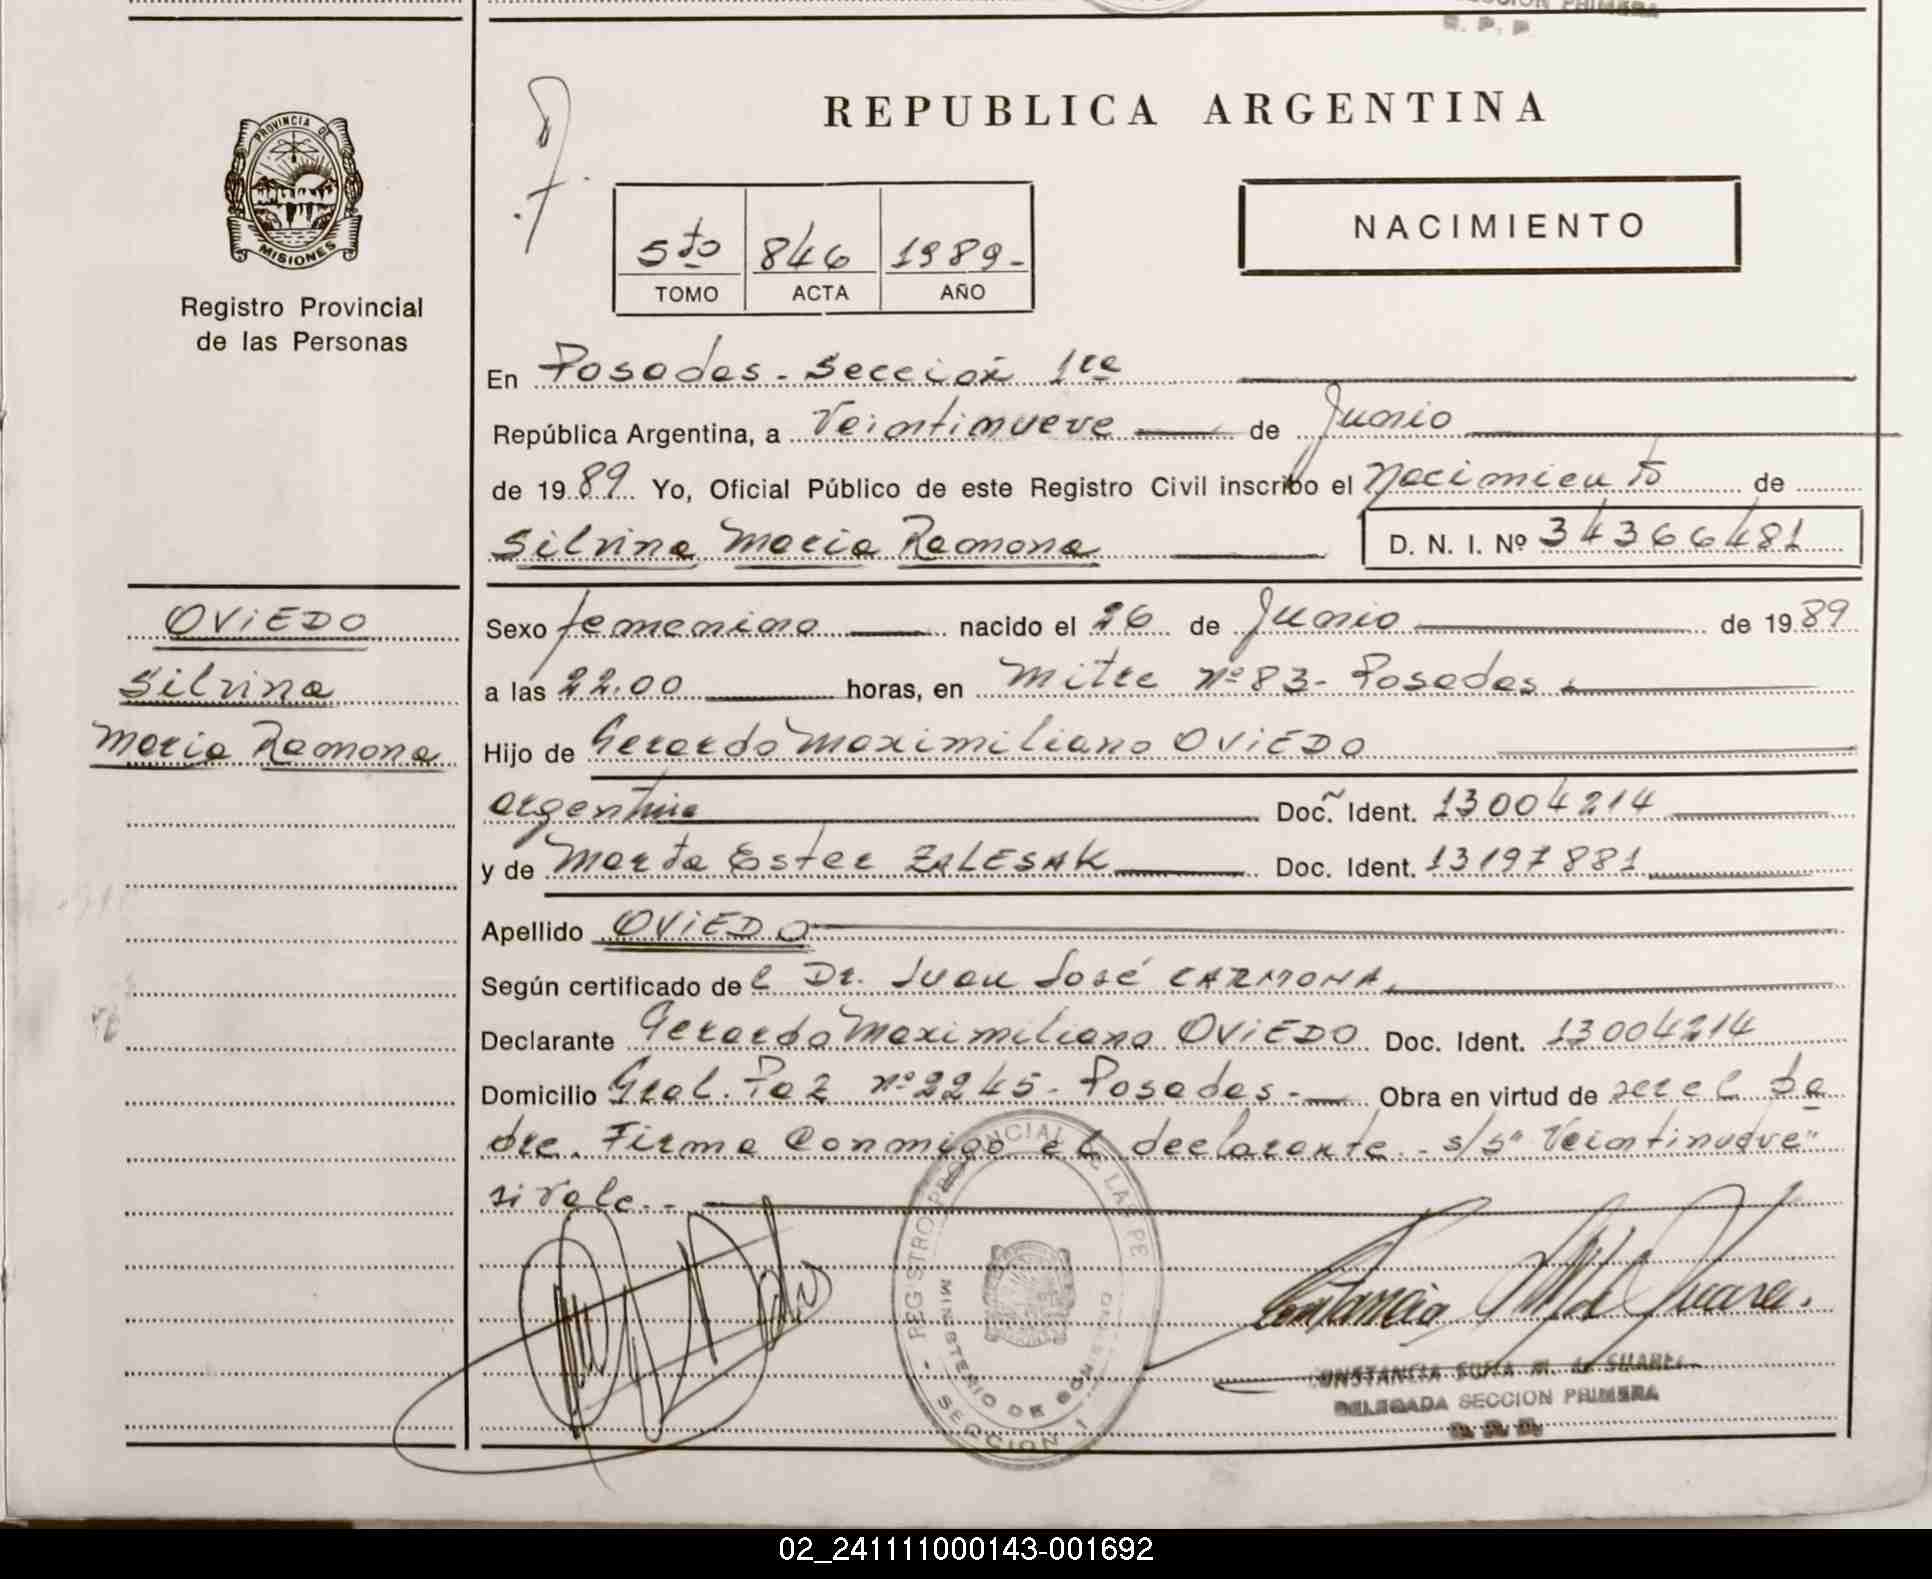 SECCION PRIMERA
R. P. P
PROVINCIA DE
MISIONES
Registro Provincial
de las Personas
REPUBLICA ARGENTINA
NACIMIENTO
5to 846 1989-
TOMO ACTA AÑO
En Posadas - Sección 1ra
República Argentina, a Veintinueve de Junio
de 1989 Yo, Oficial Público de este Registro Civil inscribo el Nacimiento de
Silvina Maria Ramona D. N. I. Nº 34366481
OVIEDO
Silvina
Maria Ramona
Sexo femenino nacido el 26 de Junio de 1989
a las 22.00 horas, en Mitre Nº 83 - Posadas.
Hijo de Gerardo Maximiliano OVIEDO
argentino Doc. Ident. 13004214
y de Marta Ester ZALESAK Doc. Ident. 13197881
Apellido OVIEDO
Según certificado del Dr. Juan José CARMONA.
Declarante Gerardo Maximiliano OVIEDO Doc. Ident. 13004214
Domicilio Gral. Paz nº 2245 - Posadas - Obra en virtud de ser el pa
dre. Firma Conmigo el declarante - s/s "Veintinueve"
si vale.-
REGISTRO PROVINCIAL DE LAS PE
MINISTERIO DE GOBIERNO
- SECCION 1
Constancia de Suarez.
CONSTANCIA SOFIA M. de SUAREZ
DELEGADA SECCION PRIMERA
R. P. P.
02_241111000143-001692